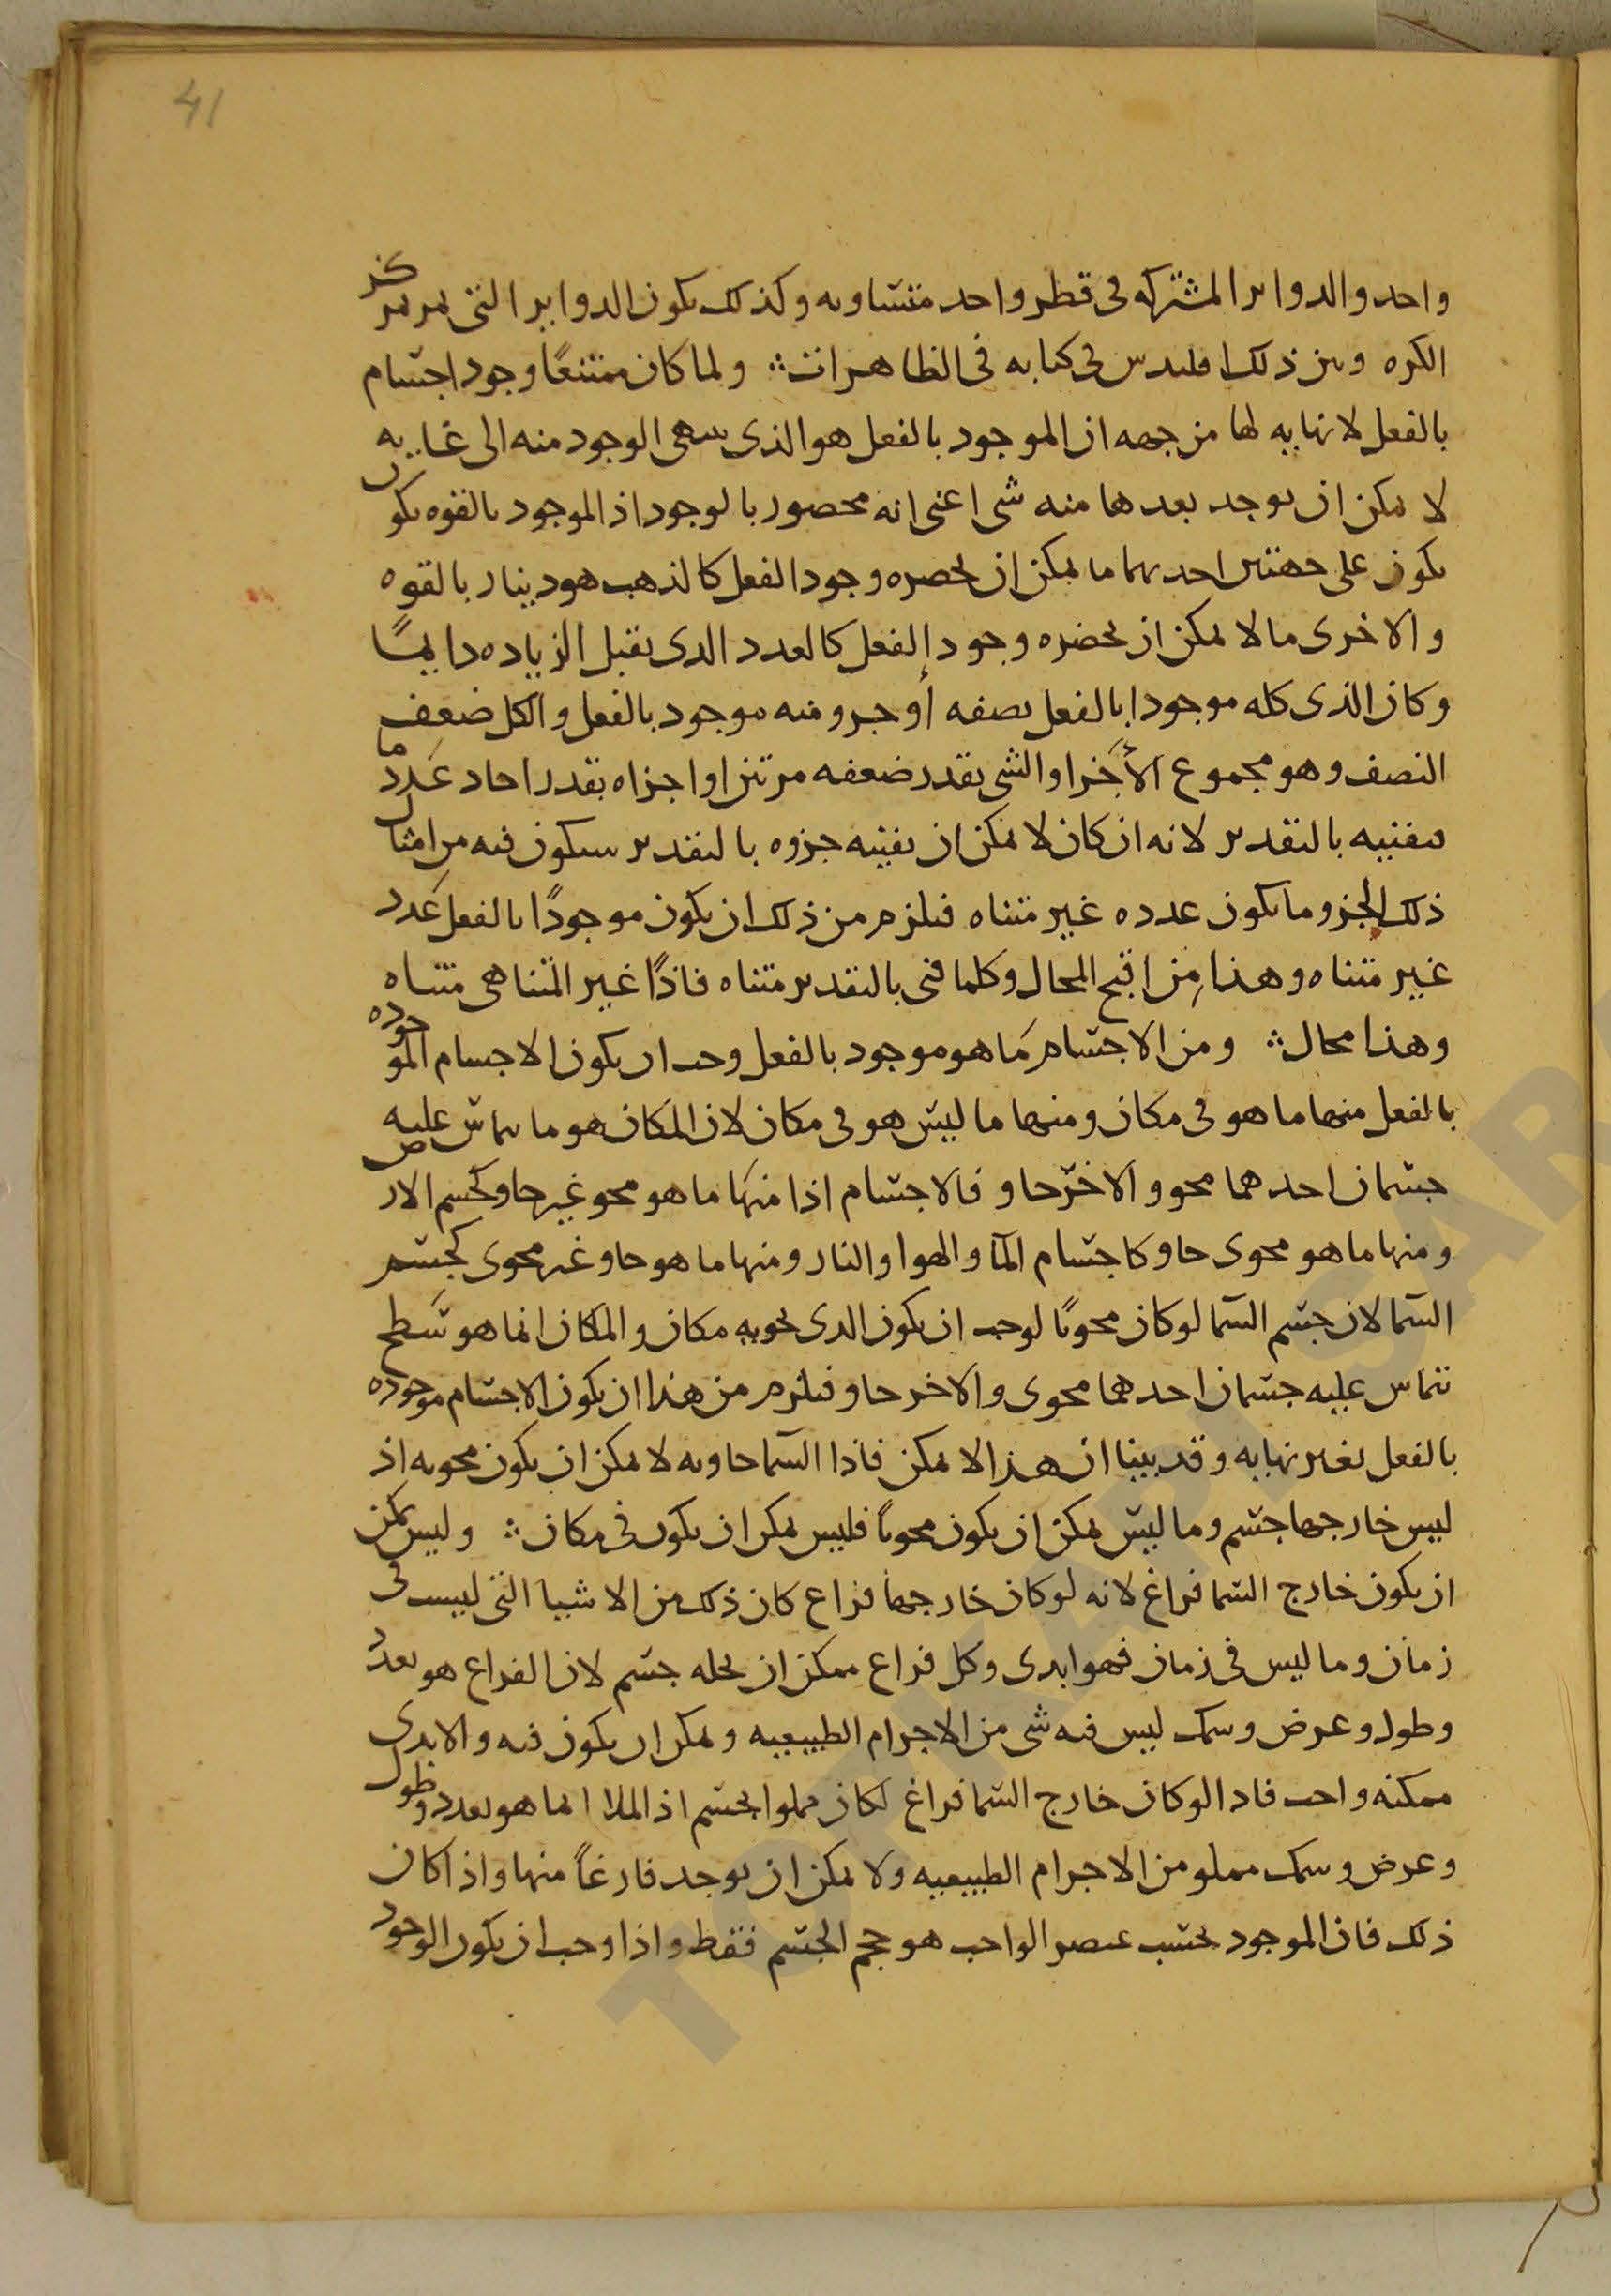 41
واحد والدواير المشتركه فى قطر واحد متساويه وكذلك يكون الدواير التى تمر بمركز
الكره وبين ذلك اقليدس فى كتابه فى الظاهرات ؞ ولما كان ممتنعًا وجود اجسام
بالفعل لا نهايه لها من جهه ان الموجود بالفعل هو الذى ينتهى الوجود منه الى غايه
لا يمكن ان يوجد بعدها منه شى اعنى انه محصور بالوجود اذ الموجود بالقوه يكون
يكون على جهتين احديهما ما يمكن ان يحصره وجود الفعل كالذهب هو دينار بالقوه
والاخرى ما لا يمكن ان يحضره وجود الفعل كالعدد الدى يقبل الزياده دايمًا
وكان الذى كله موجودا بالفعل نصفه أو جزو منه موجود بالفعل والكل ضعف
النصف وهو مجموع الأجزا والشى يقدر ضعفه مرتين واجزاه بقدر احاد عدد ما
تفنيه بالتقدير لانه ان كان لا يمكن ان يفنيه جزوه بالتقدير سيكون فيه من امثال
ذلك الجزو ما يكون عدده غير متناه فيلزم من ذلك ان يكون موجودًا بالفعل عدد
غير متناه وهذا من اقبح المحال وكلما فنى بالتقدير متناه فاذًا غير المتناهى متناه
وهذا محال ؞ ومن الاجسام ما هو موجود بالفعل وجب ان يكون الاجسام الموجوده
بالفعل منها ما هو فى مكان ومنها ما ليس هو فى مكان لان المكان هو ما يماس عليه
جسمان احدهما محوو الاخر حاو فالاجسام اذا منها ما هو محو غير حاو كجسم الارض
ومنها ما هو محوى حاو كاجسام المآ والهوا والنار ومنها ما هو حاو غير محوى كجسم
السما لان جسم السما لو كان محويًا لوجب ان يكون الدى يحويه مكان والمكان انما هو سطح
تتماس عليه جسمان احدهما محوى والاخر حاو فيلزم من هذا ان يكون الاجسام موجوده
بالفعل بغير نهايه وقد بينا ان هذا لا يمكن فاذا السما حاويه لا يمكن ان يكون محويه اذ
ليس خارجها جسم وما ليس يمكن ان يكون محويًا فليس يمكن ان يكون فى مكان ؞ وليس يمكن
ان يكون خارج السما فراغ لانه لو كان خارجها فراع كان ذلك من الاشيا التى ليست فى
زمان وما ليس فى زمان فهو ابدى وكل فراع ممكن ان يحله جسم لان الفراع هو بعد
وطول وعرض وسمك ليس فيه شى من الاجرام الطبيعيه ويمكن ان يكون فيه والابدى
ممكنه واجب فاذا لو كان خارج السما فراغ لكان مملوا بجسم اذ الملا انما هو بعد وطول
وعرض وسمك مملو من الاجرام الطبيعيه ولا يمكن ان يوجد فارغًا منها واذا كان
ذلك فان الموجود بحسب عنصر الواجب هو حجم الجسم فقط واذا وجب ان يكون الوجود